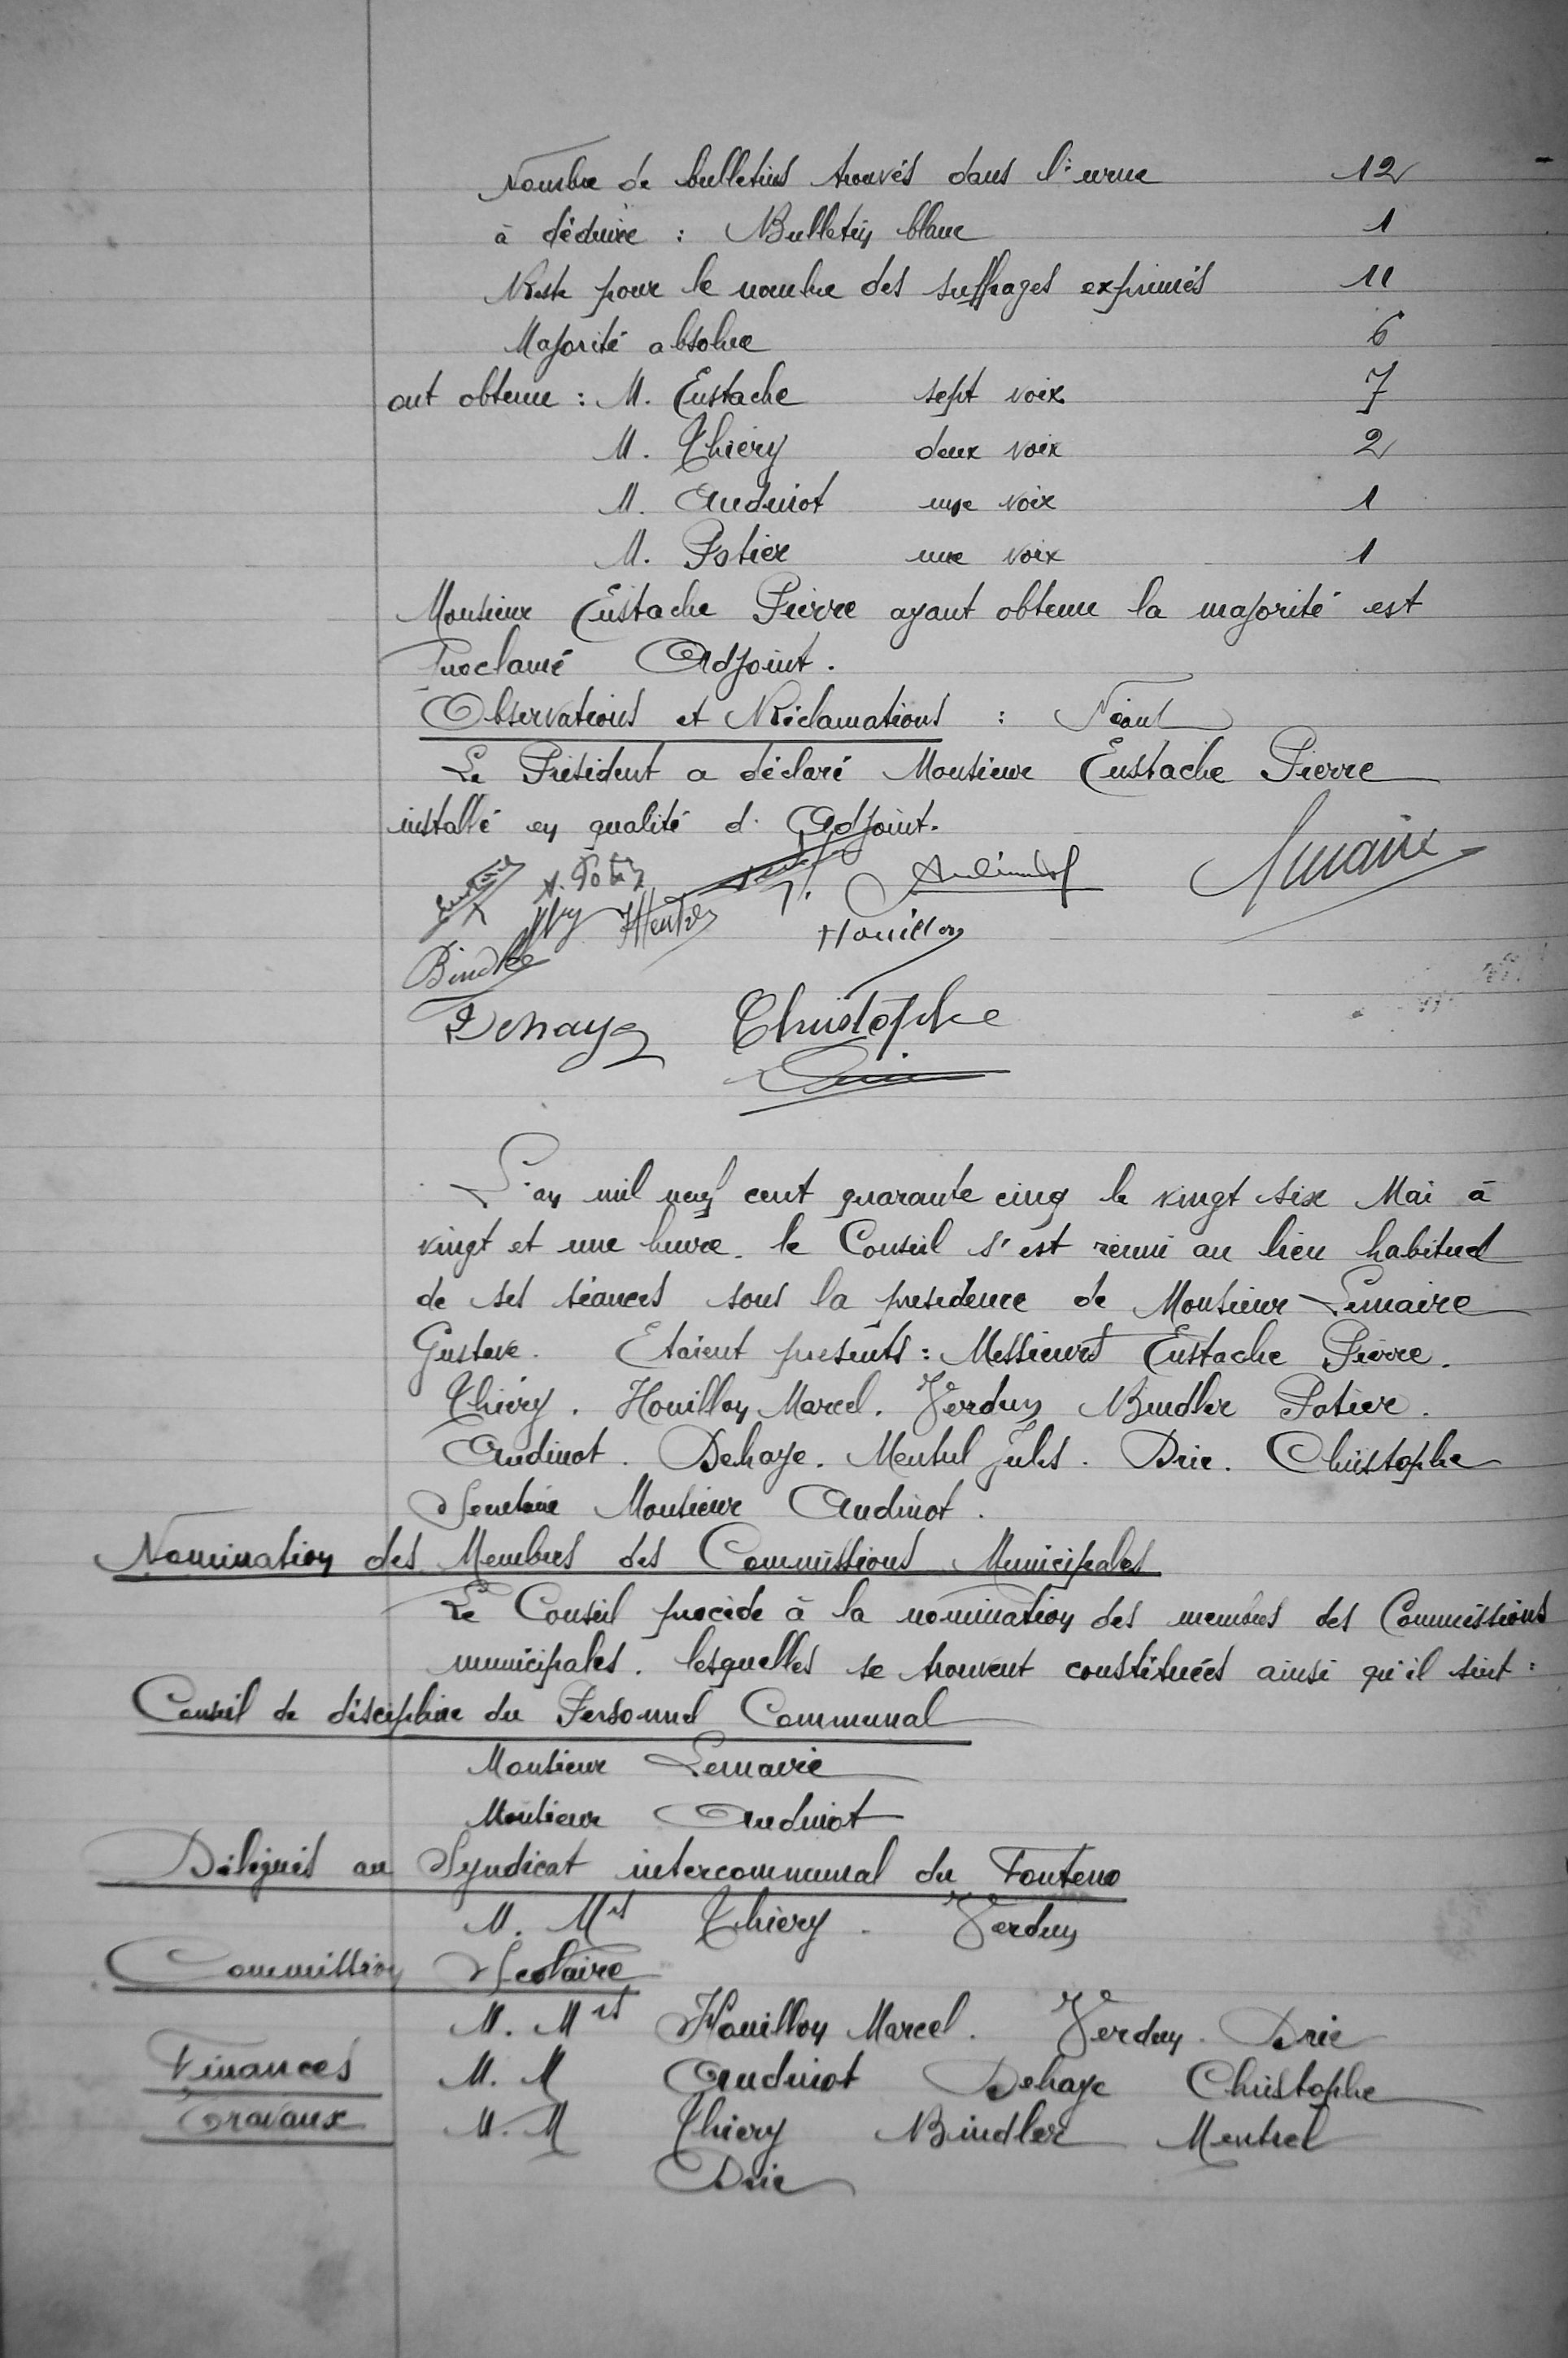 Nombre de bulletins trouvés dans l'urne 12
à déduire : Bulletin blanc 1
Reste pour le nombre des suffrages exprimés 11
Majorité absolue 6
ont obtenu : M. Eustache sept voix 7
M. Thiéry deux voix 2
M. Audinot une voix 1
M. Potier une voix 1
Monsieur Eustache Pierre ayant obtenu la majorité est
proclamé Adjoint.
Observations et Réclamations : Néant
Le Président a déclaré Monsieur Eustache Pierre
installé en qualité d'Adjoint.
A. Potier Audinot Lemaire
Mentrel Houillon
Bindler
Dehaye Christophe
L'an mil neuf cent quarante cinq le vingt six Mai à
vingt et une heure. le Conseil s'est réuni au lieu habituel
de ses séances sous la présidence de Monsieur Lemaire
Gustave. Etaient présents : Messieurs Eustache Pierre.
Thiéry. Houillon Marcel. Verdun Bindler Potier.
Audinot. Dehaye. Mentrel Jules. Drie. Christophe
Secrétaire Monsieur Audinot.
Nomination des Membres des Commissions Municipales
Le Conseil procède à la nomination des membres des Commissions
municipales. lesquelles se trouvent constituées ainsi qu'il suit :
Conseil de discipline du Personnel Communal
Monsieur Lemaire
Monsieur Audinot
Délégués au Syndicat intercommunal du Fonteno
M. Mrs Thiery. Verdun
Commission Scolaire
M. Mrs Houillon Marcel. Verdun. Drie
Finances M. M Audinot Dehaye Christophe
Travaux M. M Thiery Bindler Mentrel
Drie